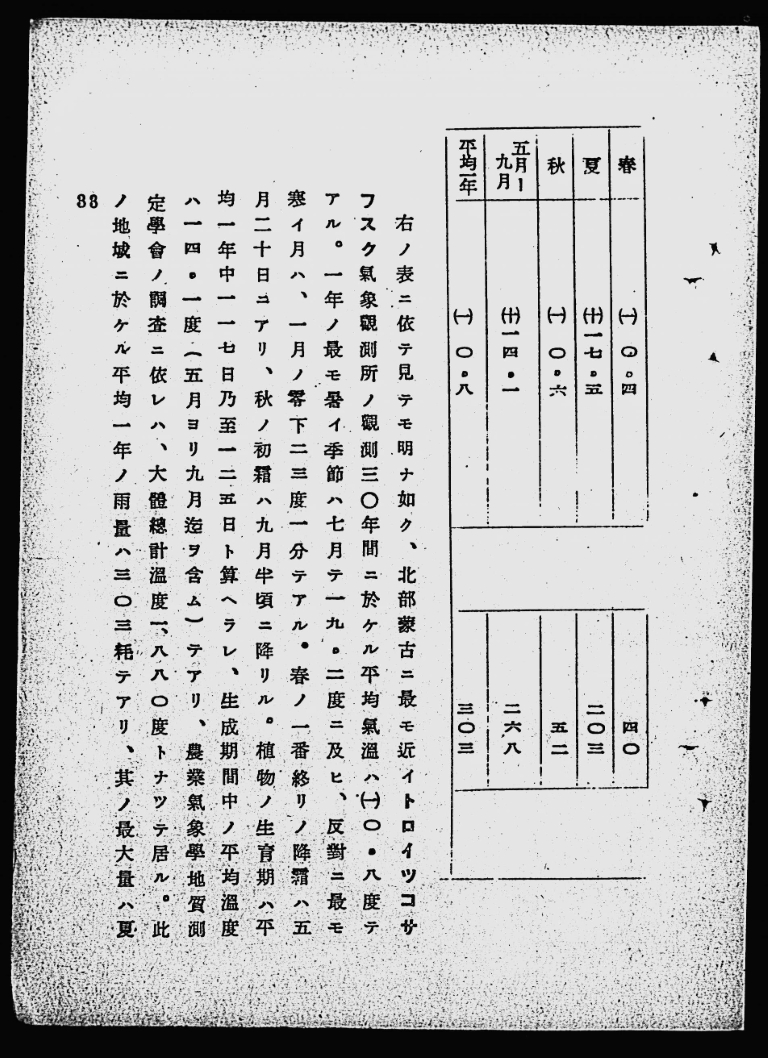 春 (一)〇。四 四〇
夏 (十)一七。五 二〇三
秋 (一)〇。六 五二
五月ー九月 (十)一四。一 二六八
平均一年 (一)〇。八 三〇三
右ノ表ニ依テ見テモ明ナ如ク、北部蒙古ニ最モ近イトロイツコサ
フスク氣象觀測所ノ觀測三〇年間ニ於ケル平均氣溫ハ(一)〇。八度テ
アル。一年ノ最モ暑イ季節ハ七月テ一九。二度ニ及ヒ、反對ニ最モ
寒イ月ハ、一月ノ零下二三度一分テアル。春ノ一番終リノ降霜ハ五
月二十日ニアリ、秋ノ初霜ハ九月半頃ニ降リル。植物ノ生育期ハ平
均一年中一一七日乃至一二五日ト算ヘラレ、生成期間中ノ平均溫度
ハ一四。一度(五月ヨリ九月迄ヲ含ム)テアリ、農業氣象學地質測
定學會ノ調査ニ依レハ、大體總計溫度一、八八〇度トナツテ居ル。此
ノ地域ニ於ケル平均一年ノ雨量ハ三〇三粍テアリ、其ノ最大量ハ夏
88